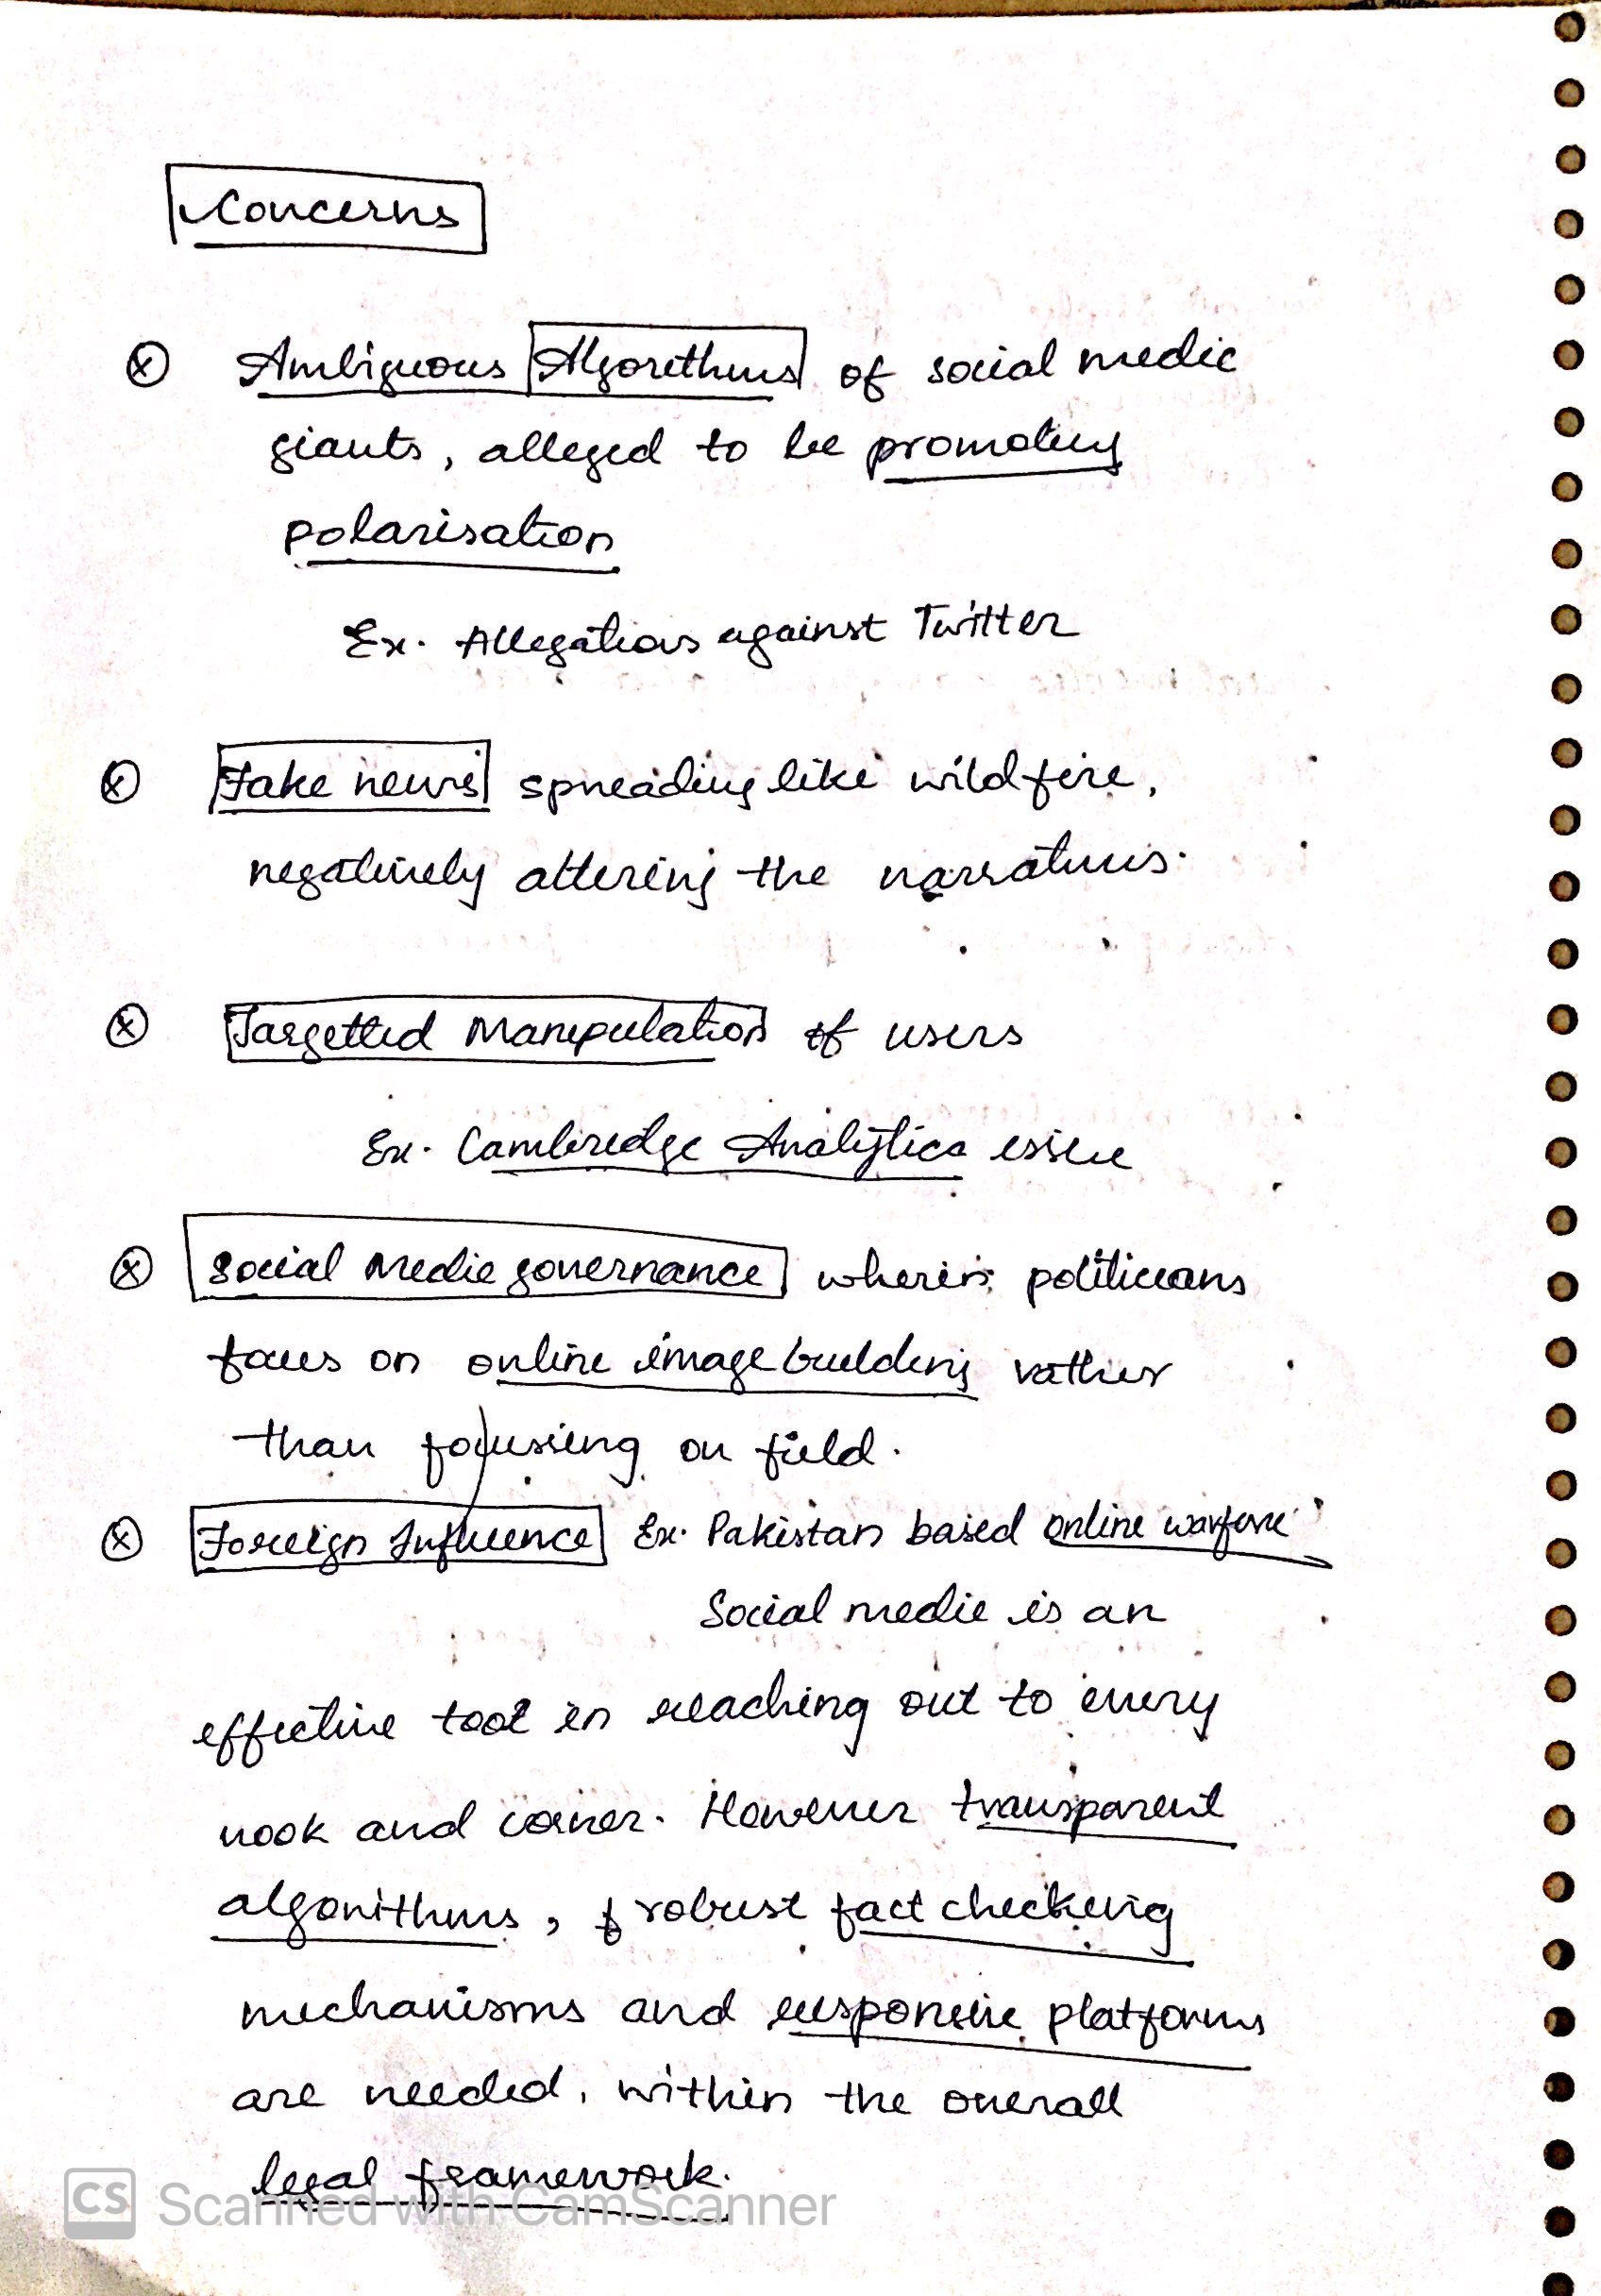 Concerns
ⓧ Ambiguous Algorithms of social media
giants, alleged to be promoting
polarisation
Ex. Allegations against Twitter
ⓧ Fake news spreading like wildfire,
negatively altering the narratives.
ⓧ Targetted Manipulation of users
Ex. Cambridge Analytica issue
ⓧ Social Media governance wherein politicians
focus on online image building rather
than focussing on field.
ⓧ Foreign Influence Ex. Pakistan based online warfare
Social media is an
effective tool in reaching out to every
nook and corner. However transparent
algorithms, robust fact checking
mechanisms and responsive platforms
are needed, within the overall
legal framework.
CS Scanned with CamScanner